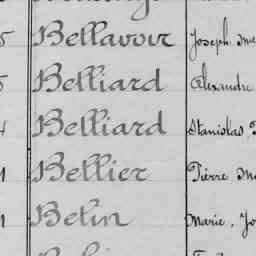 Bellavoir Joseph
Belliard Alexandre
Belliard Stanislas
Bellier Pierre
Belin Marie, Jo